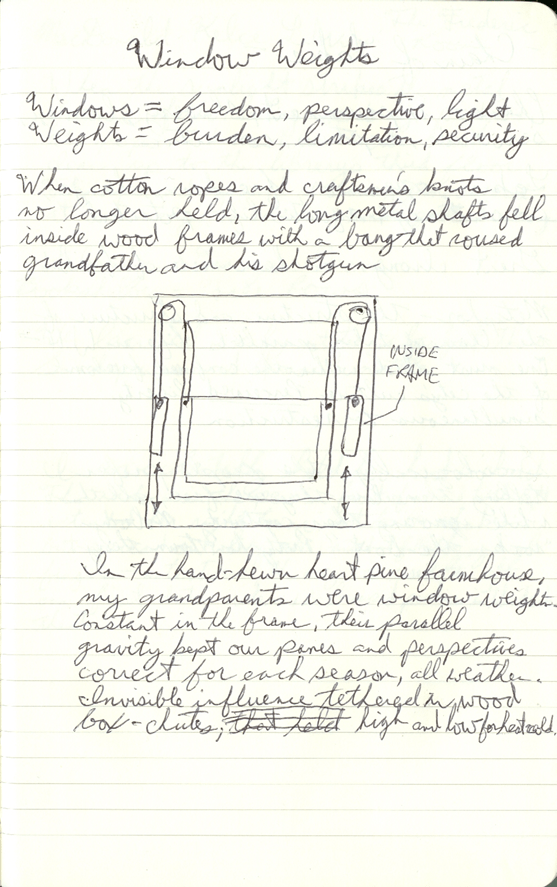 Window Weights
Windows = freedom, perspective, light
Weights = burden, limitation, security
When cotton ropes and craftsmen's knots
no longer held, the long metal shafts fell
inside wood frames with a bang that roused
grandfather and his shotgun
INSIDE
FRAME
In the hand-hewn heart pine farmhouse,
my grandparents were window weights.
Constant in the frame, their parallel
gravity kept our panes and perspectives
correct for each season, all weather.
Invisible influence tethered in wood
box-chutes, that held high and low for heat cold.